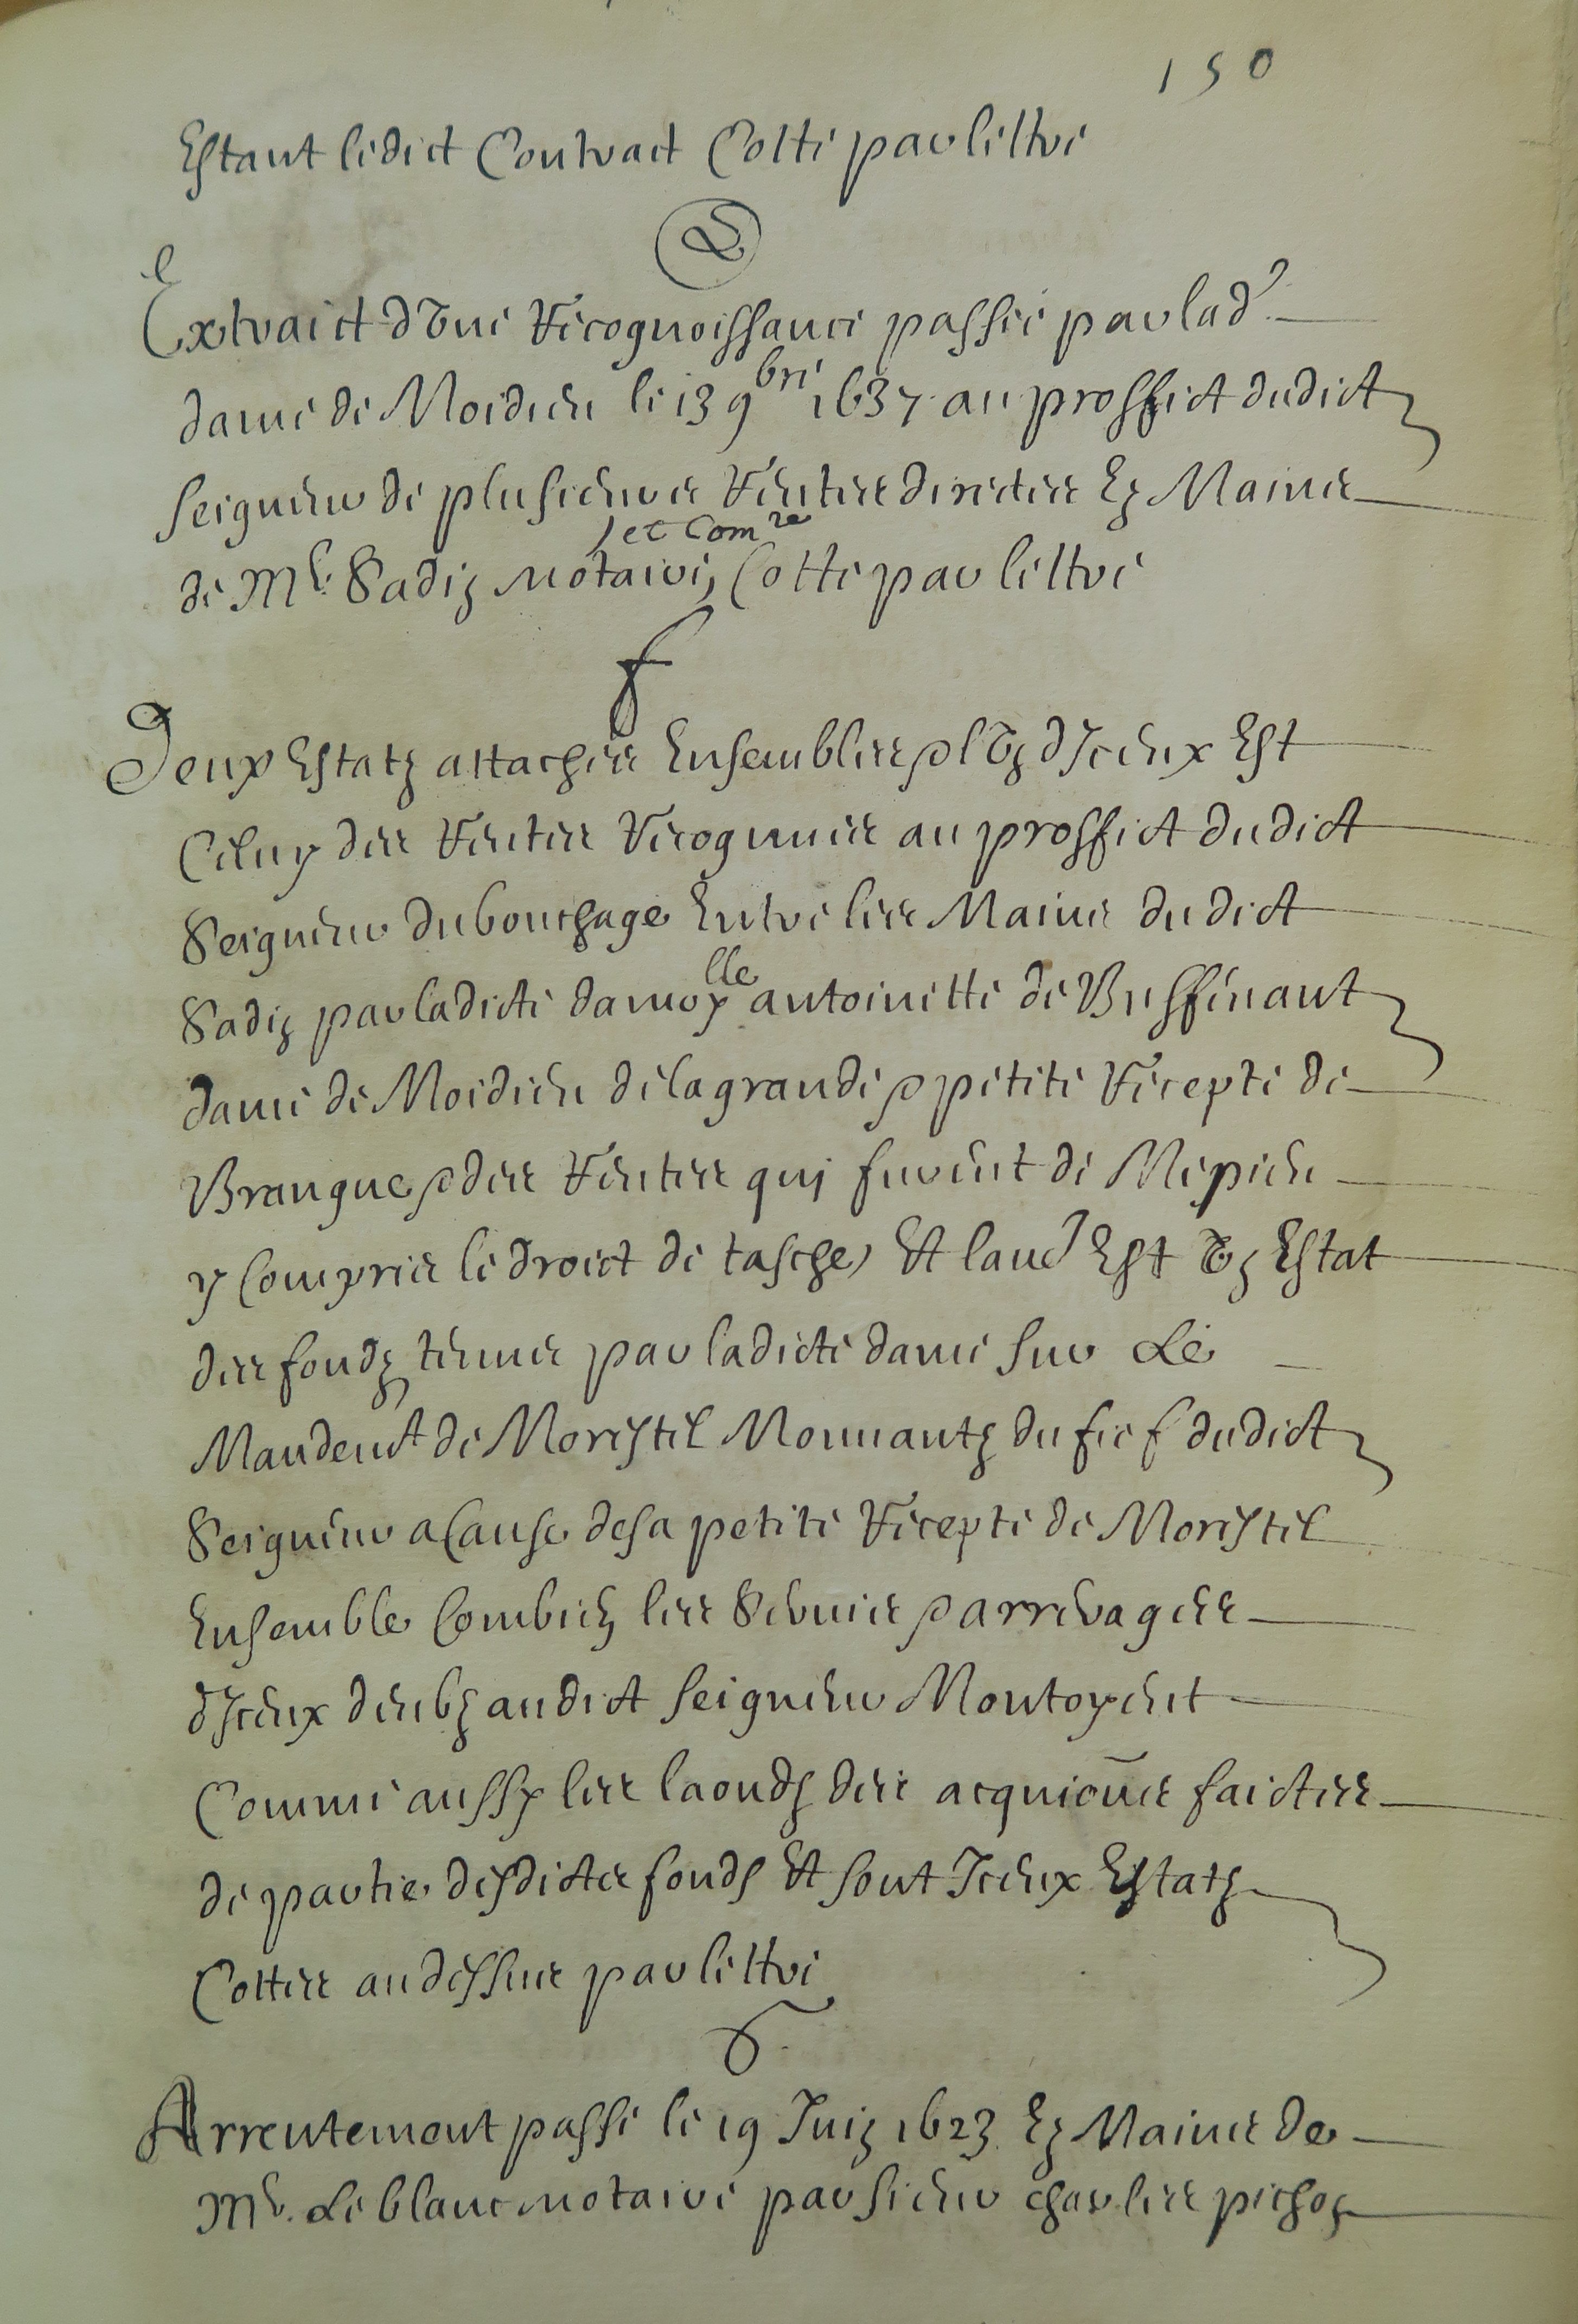 150
Estant ledict Contract Cotté par lettre
E
Extraict d'vne recognoissance passée par lad.
dame de Moidieu le 13 9bre 1637 au proffict dudict
seigneur de plusieurs rentes directes Ez Mains
de Me. Sadin notaire, et Comre Cotté par lettre
f
Deux Estatz attachés Ensembles l'vn d'Iceux Est
Celuy des rentes recognues au proffict dudict
Seigneur du bouchage Entre les Mains dudict
Sadin par ladicte damoylle antoinette de Buffeuant
dame de Moidieu de la grande & petite recepte de
Brangue & des rentes quj furent de Mepieu
y Compris le droict de tasche, Et laud Est vn Estat
des fondz tenus par ladicte dame sur Le
Mandent de Morestel Mouuantz du fief dudict
Seigneur a Cause de sa petite recepte de Morestel
Ensemble Combien les Seruis & arrerages
d'Iceux deubz audict seigneur Montoyent
Comme aussy les laoudz des acquiōns faictes
de partie desdicts fonds Et sont Iceux Estatz
Cottés au dessus par lettre
G
Arrentement passé le 19 Juin 1623 Ez Mains de
Me. Le blanc notaire par sieur charles pichon